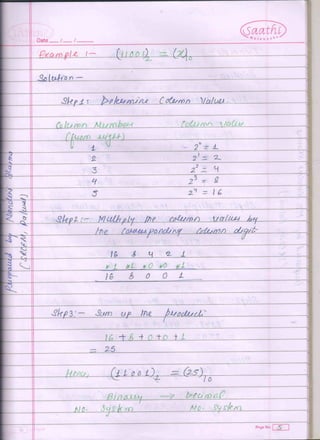 Date ___/___/______
Saathi
Example 1 -
(11001)₂ = (x)₁₀
Solution -
Step 1: Determine Column Values
Column Number
(from right)
Column Value
1 - 2⁰ = 1
2 2¹ = 2
3 2² = 4
4 2³ = 8
5 2⁴ = 16
Step 2:- Multiply the column values by
the corresponding column digit
16 8 4 2 1
×1 ×1 ×0 ×0 ×1
16 8 0 0 1
Step 3:- Sum up the products
16 + 8 + 0 + 0 + 1
= 25
Hence, (11001)₂ = (25)₁₀
Binary → Decimal
No. System No. System
Prepared by
Page No. 5